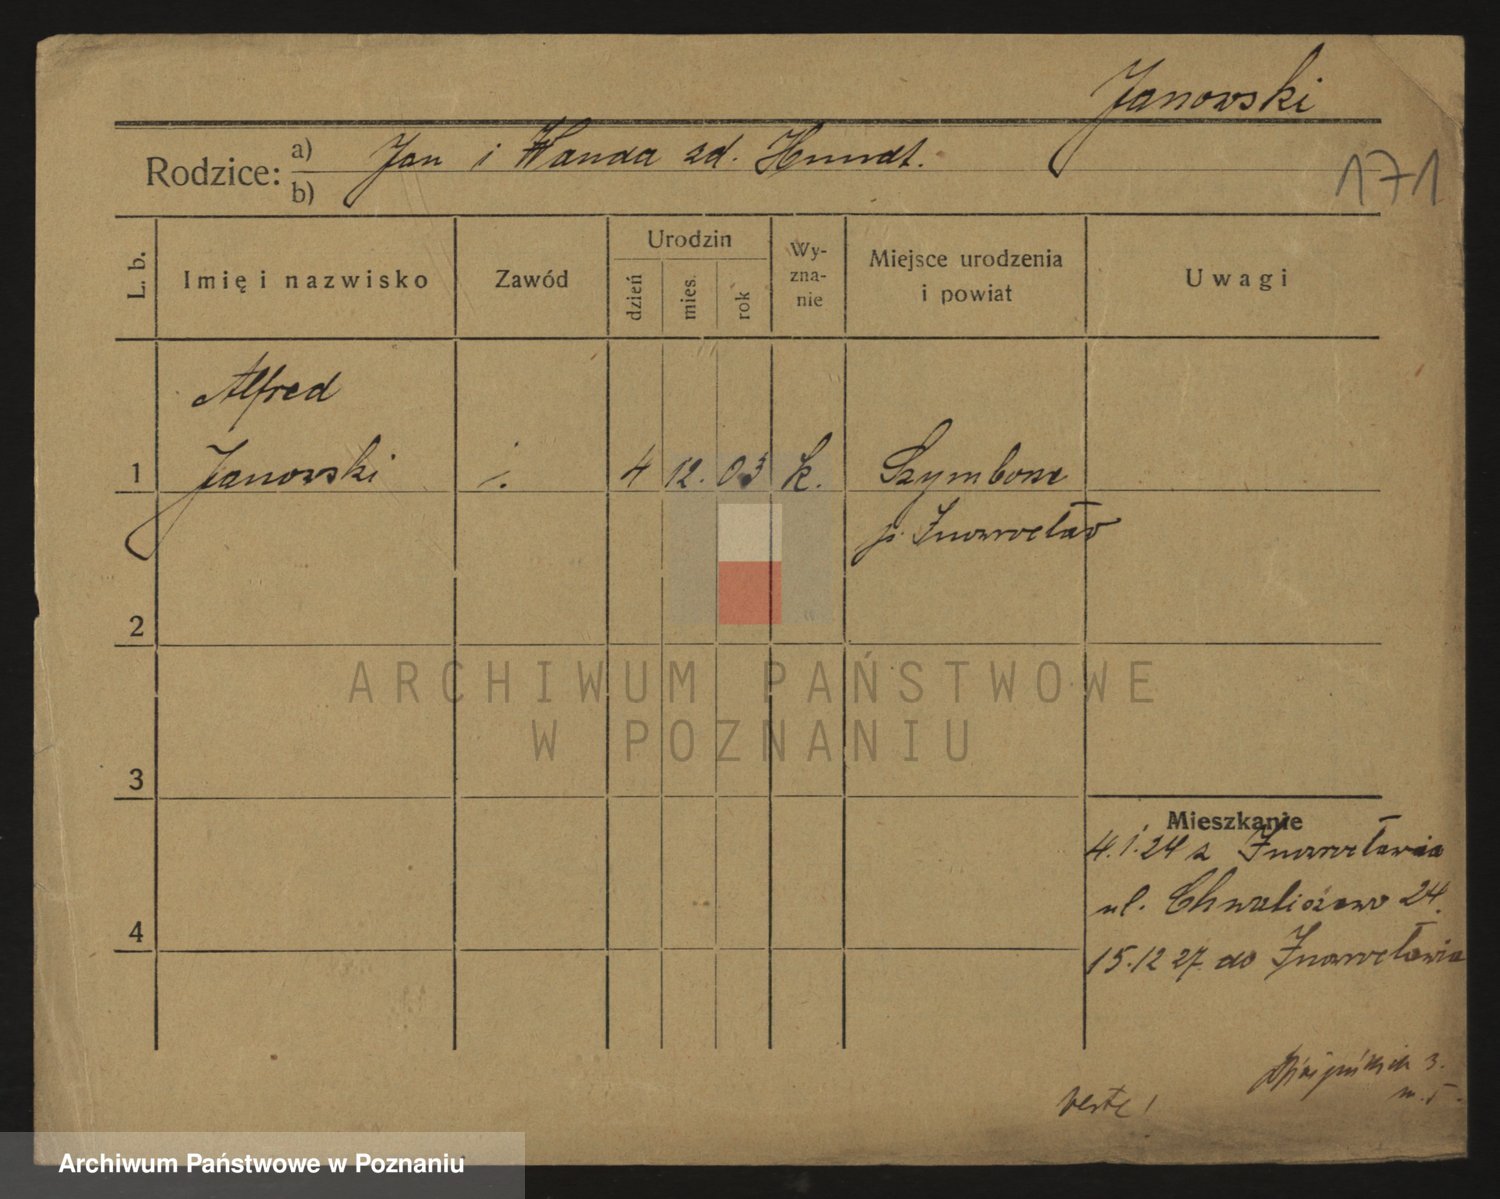 Janowski
Rodzice: a) Jan i Wanda zd. Hundt.
b)
171
L. b. Imię i nazwisko Zawód Urodzin dzień mies. rok Wy-zna-nie Miejsce urodzenia i powiat Uwagi
Alfred
1 Janowski 4 12. 03 k. Szymborze
p. Inowrocław
2
ARCHIWUM PAŃSTWOWE
W POZNANIU
3
Mieszkanie
4.1.24 z Inowrocławia
ul. Chwaliszewo 24.
4
15.12 27. do Inowrocławia
3.
m. 5.
verte!
Archiwum Państwowe w Poznaniu